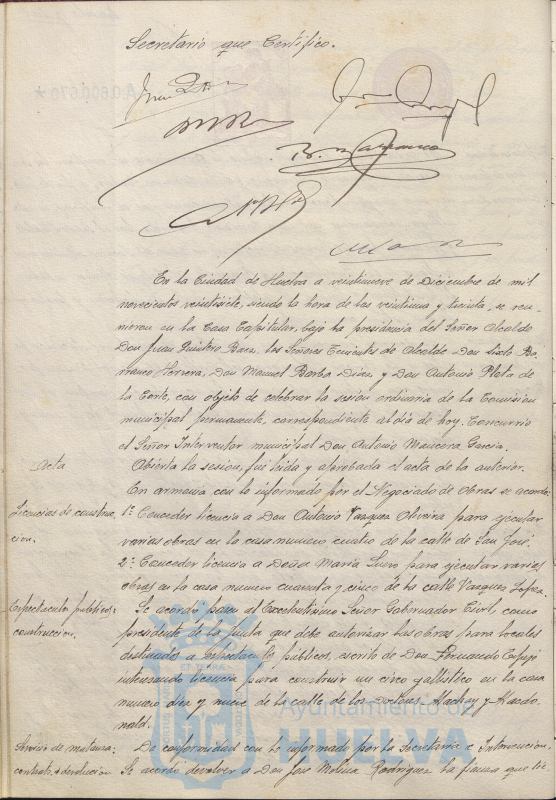 Secretario que Certifico.
En la Ciudad de Huelva a veintinueve de Diciembre de mil
novecientos veintisiete, siendo la hora de las veintiuna y treinta, se reu-
nieron en la Casa Capitular, bajo la presidencia del Señor Alcalde
Don Juan Quintero Baez, los Señores Tenientes de Alcalde Don Sixto Ba-
rranco Herrera, Don Manuel Barba Diaz, y Don Antonio Plata de
la Corte, con objeto de celebrar la sesion ordinaria de la Comision
municipal permanente, correspondiente al dia de hoy. Concurrió
el Señor Interventor municipal Don Antonio Mancera Garcia.
Acta
Abierta la sesion, fué leida y aprobada el acta de la anterior.
En armonia con lo informado por el Negociado de Obras se acordó:
Licencias de construc-
cion.
1º. Conceder licencia a Don Antonio Vazquez Oliveira para ejecutar
varias obras en la casa numero cuatro de la calle de San José.
2º. Conceder licencia a Doña María para ejecutar varias
obras en la casa numero cuarenta y cinco de la calle Vazquez Lopez.
Espectaculos públicos:
construccion.
Se acordó pasar al Excelentísimo Señor Gobernador Civil, como
presidente de la Junta que debe autorizar las obras para locales
destinados a espectaculos públicos, escrito de Don Fernando Crespo
interesando licencia para construir un circo gallistico en la casa
numero diez y nueve de la calle de los Doctores Machay y Macdo-
nald.
Servicio de matanza:
contrato, devolucion
De conformidad con lo informado por la Secretaria e Intervencion,
Se acordó devolver a Don José Molina Rodriguez la fianza que tie-
Ayuntamiento de
HUELVA